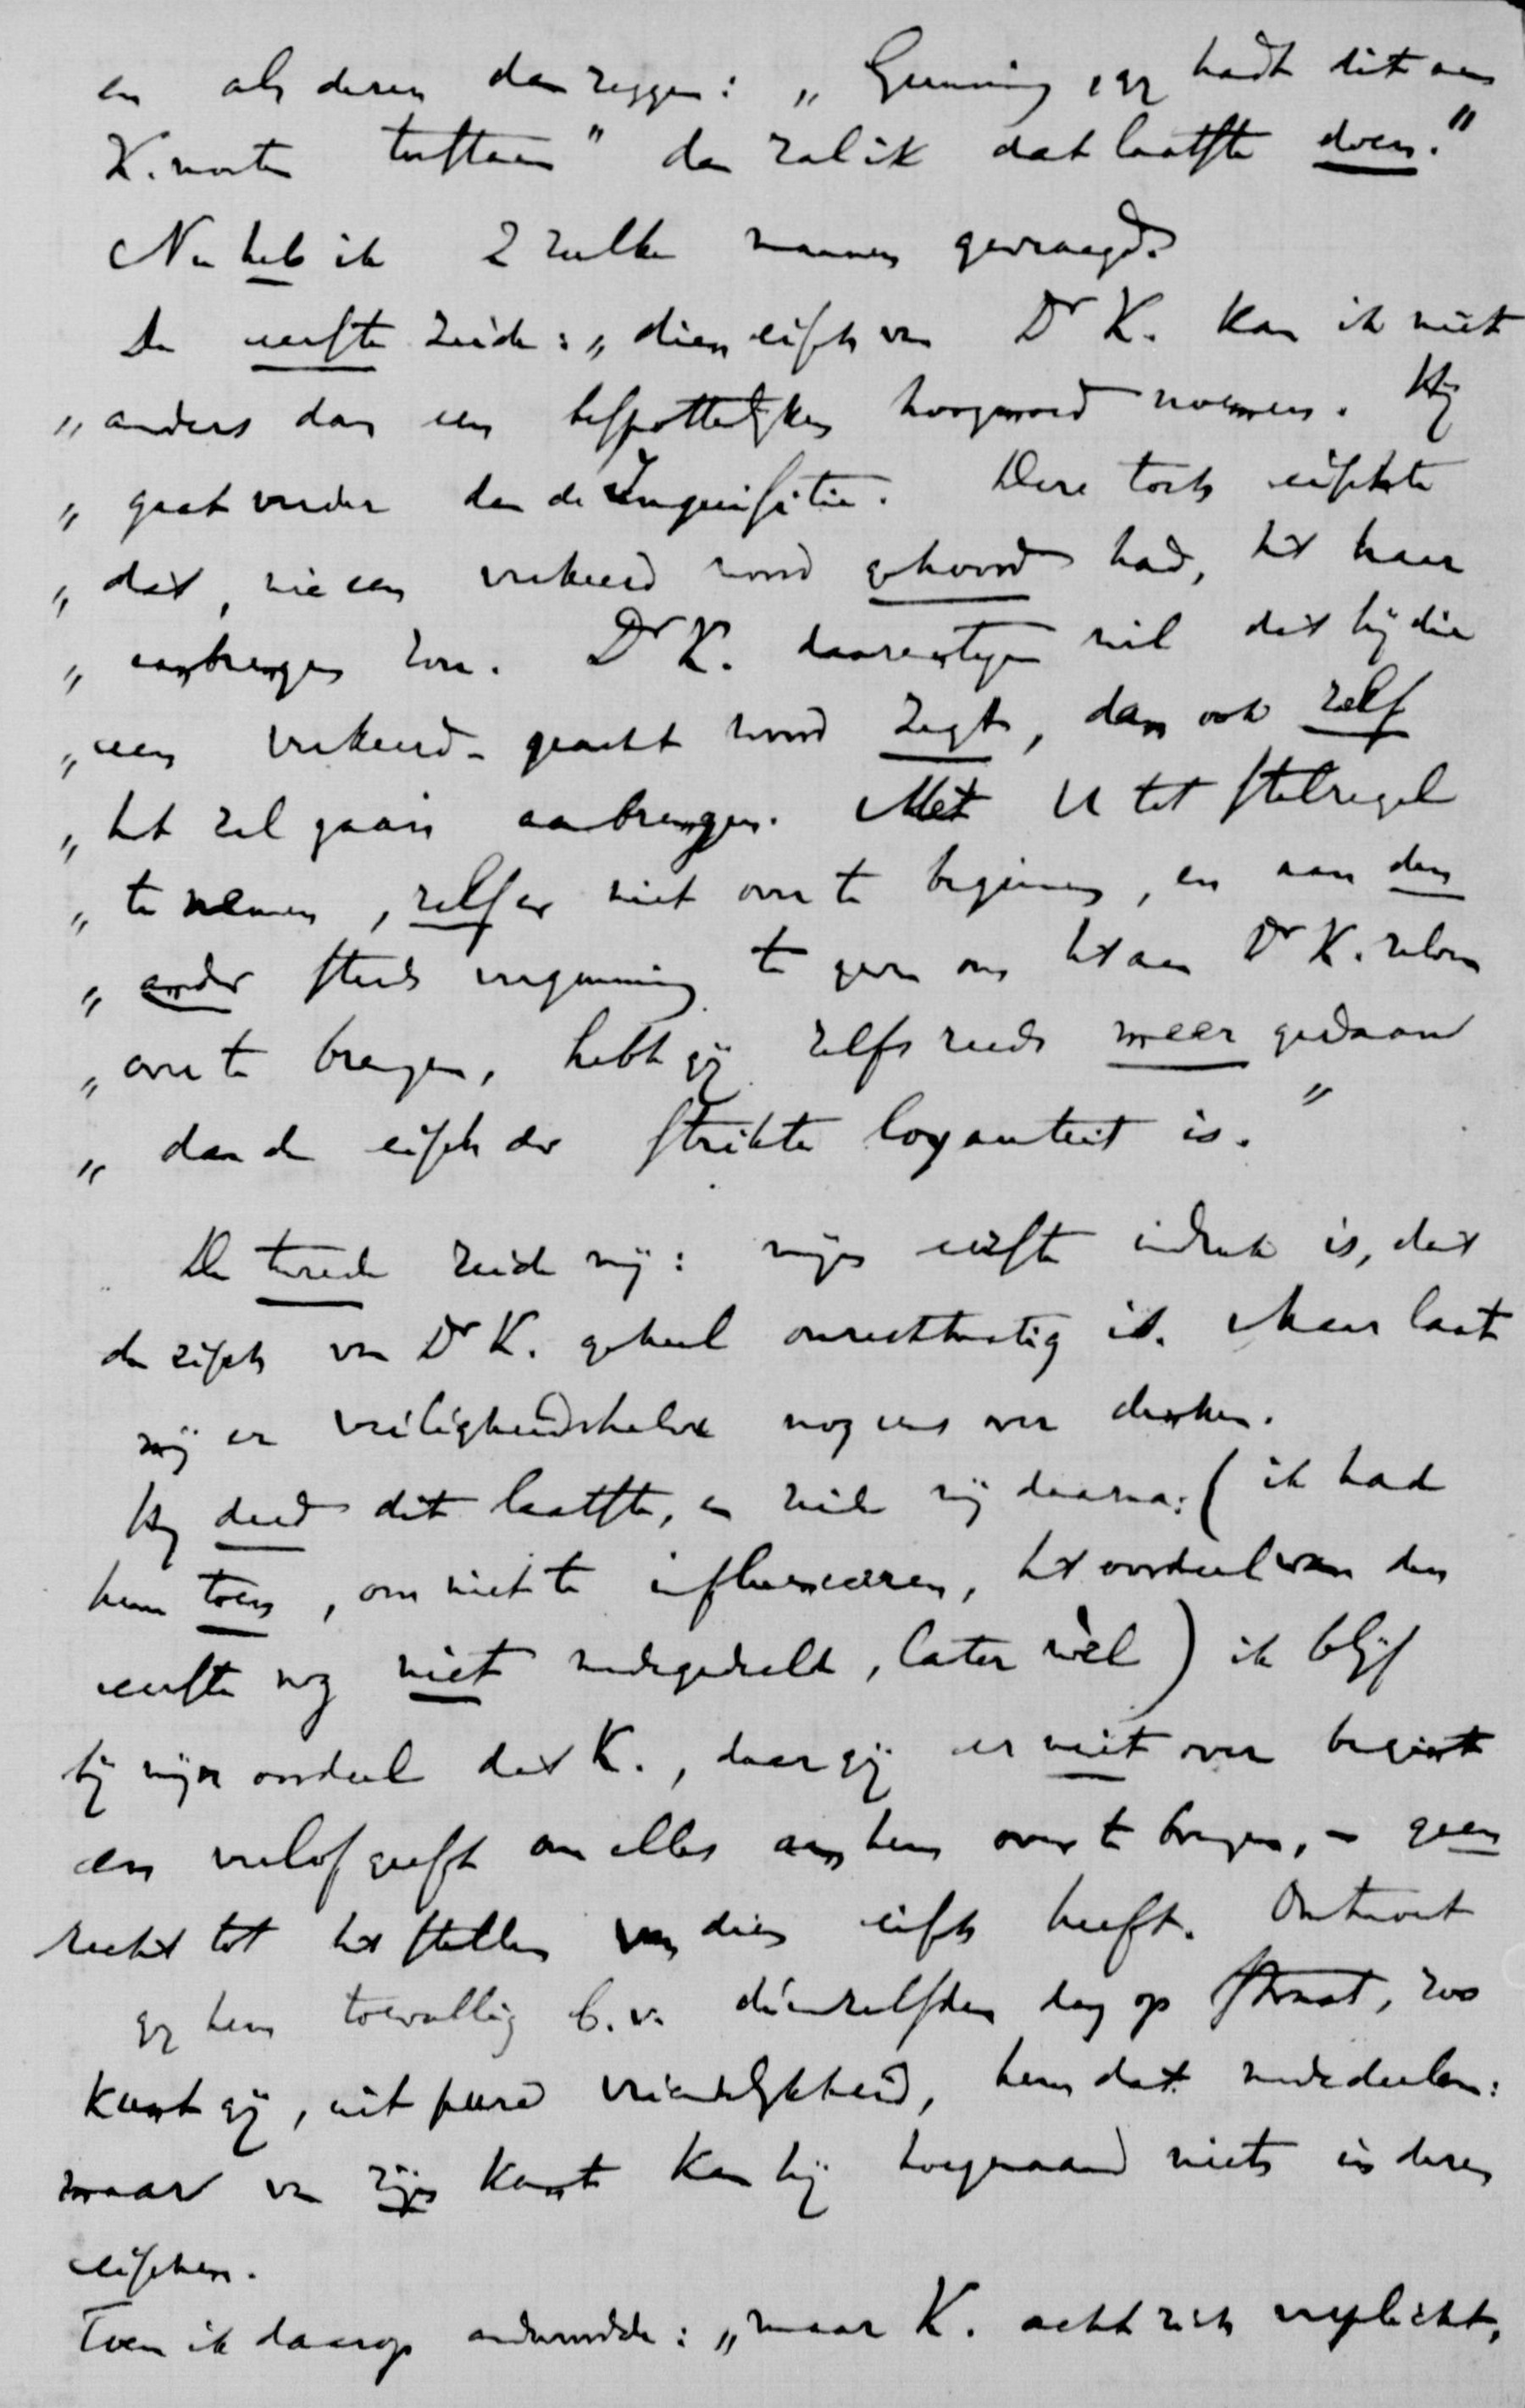 en als deren dan zeggen: „Gunning, gij hadt dit aan
K. moeten toestaan" dan zal ik dat laatste doen."
Nu heb ik 2 zulke mannen gevraagd.
De eerste zeide: „dien eisch van Dr K. kan ik niet
„anders dan een bespottelijken hoogmoed noemen. Hij
„gaat verder dan de Inquisitie. Deze toch eischte
„dat, wie een verkeerd woord gehoord had, het haar
„aanbrengen zou. Dr K. daarentegen wil dat hij die
„een verkeerd-geacht woord zegt, dan ook zelf
„het zal gaan aanbrengen. Met U tot stelregel
„te nemen, zelf er niet over te beginnen, en aan den
„ander steeds vergunning te geven om het aan Dr K. zelven
„over te brengen, hebt gij zelfs reeds meer gedaan
„dan de eisch der strikte loyauteit is."
De tweede zeide mij: mijn eerste indruk is, dat
de eisch van Dr K. geheel onrechtmatig is. Maar laat
mij er veiligheidshalve nog eens over denken.
Hij deed dit laatste, en zeide mij daarna: (ik had
hem toen, om niet te influenceeren, het oordeel van den
eerste nog niet medegedeeld, later wèl) ik blijf
bij mijn oordeel dat K., daar gij er niet over begint
en verlof geeft om alles aan hem over te brengen, - geen
recht tot het stellen van dien eisch heeft. Ontmoet
gij hem toevallig b.v. dienzelfden dag op straat, zoo
kunt gij, uit pure vriendelijkheid, hem dat mededeelen:
maar van zijn kant kan hij hoegenaamd niets in dezen
eischen.
Toen ik daarop antwoordde: „maar K. acht zich verplicht,